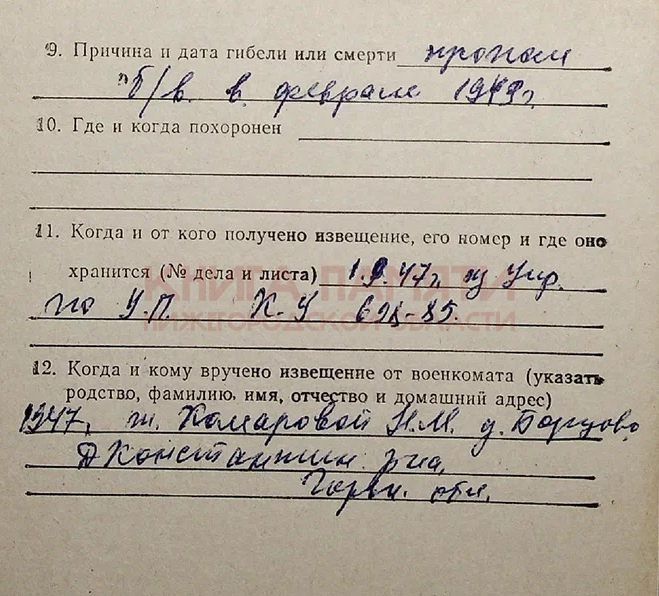 9. Причина и дата гибели или смерти пропал
б/в. в феврале 1943г.
10. Где и когда похоронен
11. Когда и от кого получено извещение, его номер и где оно
хранится (№ дела и листа) 1.9.47г. из Упр.
КНИГА ПАМЯТИ
по У.П. К-У 698-85.
НИЖЕГОРОДСКОЙ ОБЛАСТИ
12. Когда и кому вручено извещение от военкомата (указать
родство, фамилию, имя, отчество и домашний адрес)
1947г. ж. Комаровой Н.М. д. Борцово
Д Константин. р-на,
Горьк. обл.